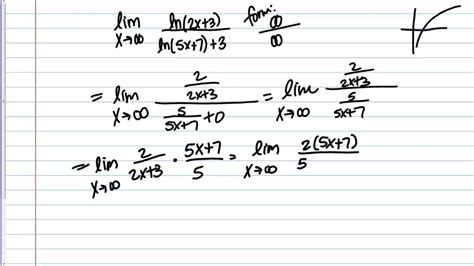 lim x→∞ ln(2x+3) / ln(5x+7)+3 form: ∞/∞
= lim x→∞ (2/(2x+3)) / (5/(5x+7) + 0) = lim x→∞ (2/(2x+3)) / (5/(5x+7))
= lim x→∞ 2/(2x+3) · (5x+7)/5 = lim x→∞ 2(5x+7) / 5